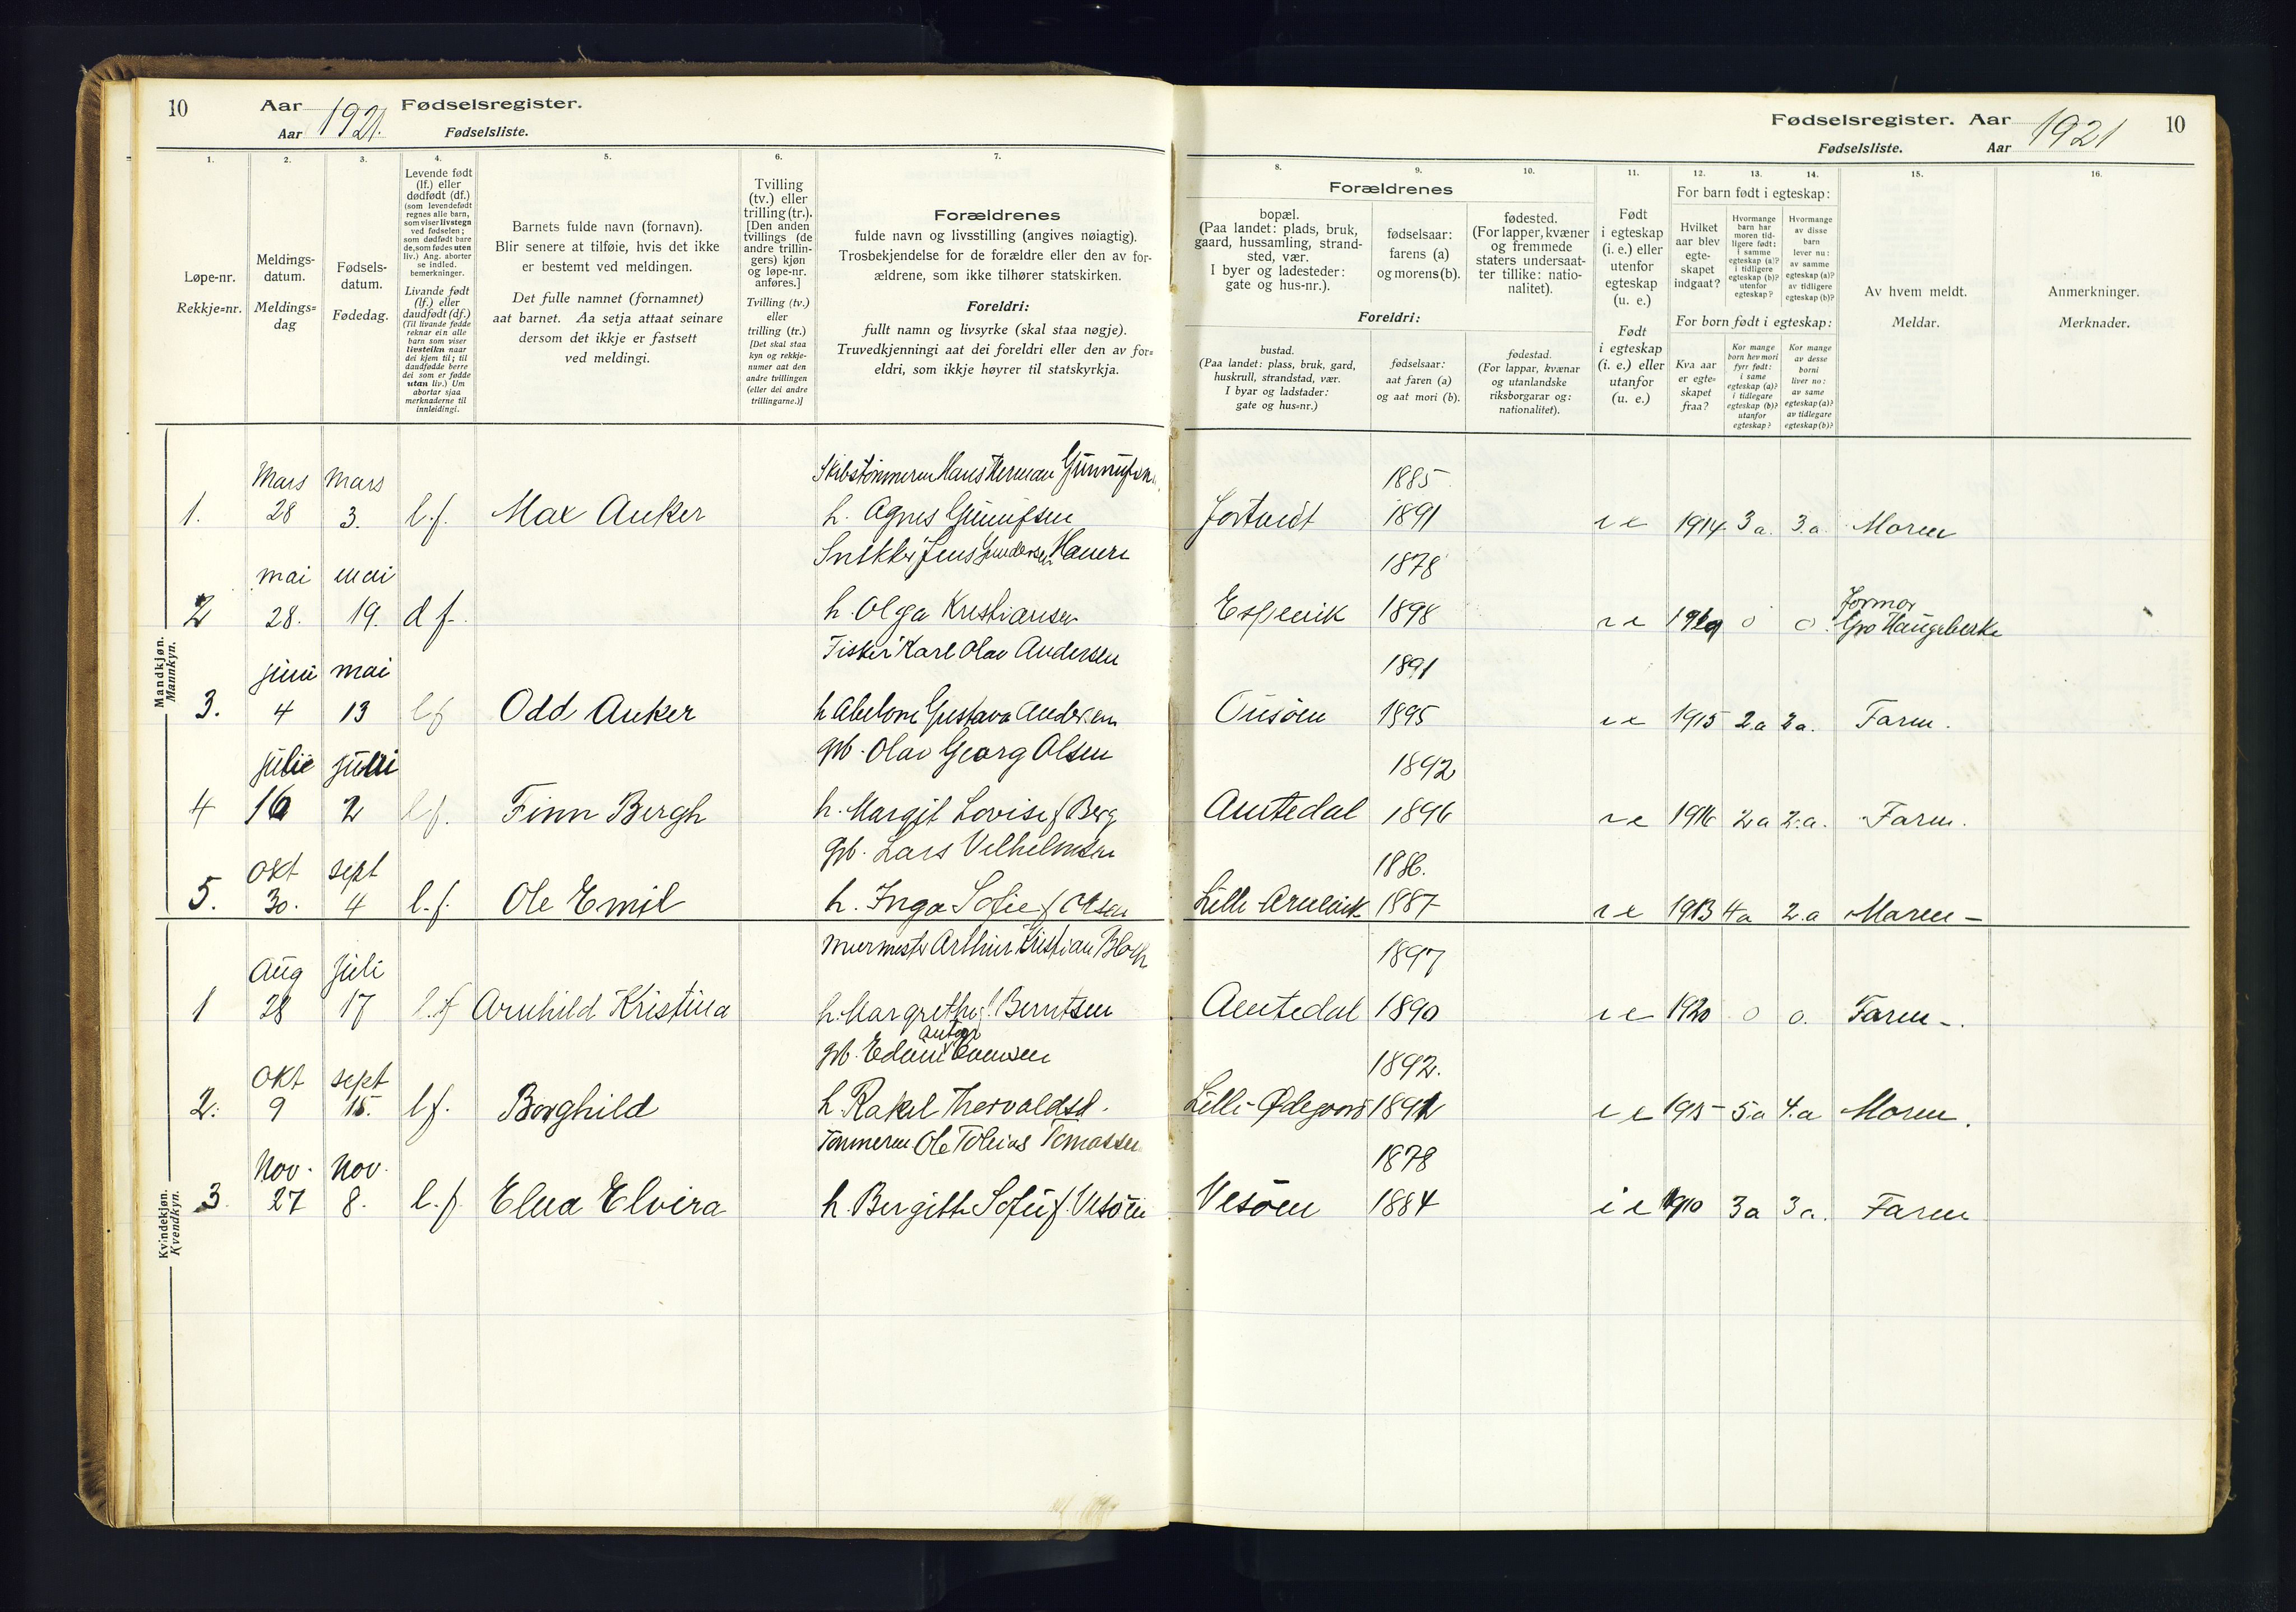 10 Aar 1921. Fødselsregister.
Aar Fødselsliste.
Fødselsregister. Aar 1921 10
Fødselsliste. Aar
1. 2. 3. 4. 5. 6. 7.
Løpe-nr.
Rekkje=nr.
Meldings-
datum.
Meldings=
dag
Fødsels-
datum.
Fødedag.
Levende født
(lf.) eller
dødfødt (df.)
(som levendefødt
regnes alle barn,
som viser livstegn
ved fødselen;
som dødfødt bare
de, som fødes uten
liv.) Ang. aborter
se indled.
bemerkninger.
Livande født
(lf.) eller
daudfødt (df.)
(Til livande fødde
reknar ein alle
barn som viser
livsteikn naar
dei kjem til; til
daudfødde berre
dei som er fødde
utan liv.) Um
abortar sjaa
merknaderne til
innleidingi.
Barnets fulde navn (fornavn).
Blir senere at tilføie, hvis det ikke
er bestemt ved meldingen.
Det fulle namnet (fornamnet)
aat barnet. Aa setja attaat seinare
dersom det ikkje er fastsett
ved meldingi.
Tvilling
(tv.) eller
trilling (tr.).
[Den anden
tvillings (de
andre trillin-
gers) kjøn
og løpe-nr.
anføres.]
Tvilling (tv.)
eller
trilling (tr.)
[Det skal staa
kyn og rekkje-
numer aat den
andre tvillingen
(eller dei andre
trillingarne.)]
Forældrenes
fulde navn og livsstilling (angives nøiagtig).
Trosbekjendelse for de forældre eller den av for-
ældrene, som ikke tilhører statskirken.
Foreldri:
fullt namn og livsyrke (skal staa nøgje).
Truvedkjenningi aat dei foreldri eller den av for=
eldri, som ikkje høyrer til statskyrkja.
8. 9. 10. 11. 12. 13. 14. 15. 16.
Forældrenes
bopæl.
(Paa landet: plads, bruk,
gaard, hussamling, strand-
sted, vær.
I byer og ladesteder:
gate og hus-nr.).
fødselsaar:
farens (a)
og morens (b).
fødested.
(For lapper, kvæner
og fremmede
staters undersaat-
ter tillike: natio-
nalitet).
Foreldri:
bustad.
(Paa landet: plass, bruk, gard,
huskrull, strandstad, vær.
I byar og ladstader:
gate og hus=nr.)
fødselsaar:
aat faren (a)
og aat mori (b).
fødestad.
(For lappar, kvænar
og utanlandske
riksborgarar og:
nationalitet).
Født
i egteskap
(i. e.) eller
utenfor
egteskap
(u. e.)
Født
i egteskap
(i. e.) eller
utanfor
(u. e.)
For barn født i egteskap:
Hvilket
aar blev
egte-
skapet
indgaat?
Hvormange
barn har
moren tid-
ligere født:
i samme
egteskap (a)?
i tidligere
egteskap (b)?
utenfor
egteskap?
Hvormange
av disse
barn
lever nu:
av samme
egteskap (a)?
av tidligere
egteskap (b)?
For born født i egteskap:
Kva aar
er egte=
skapet
fraa?
Kor mange
born hev mori
fyrr født:
i same
egteskap (a)?
i tidlegare
egteskap (b)?
utanfor
egteskap?
Kor mange
av desse
borni
liver no:
av same
egteskap (a)?
av tidlegare
egteskap (b)?
Av hvem meldt.
Meldar.
Anmerkninger.
Merknader.
Mandkjøn.
Mannkyn.
Mars Mars Hans Herman 1885
1. 28 3. l.f. Max Anker h. Agnes 1891 i e 1914 3a. 3.a. Moren
mai mai Snekker Jens 1878
2 28. 19. d f. h. Olga Kristiansen Espevik 1898 i e o o. Formor
Gro
juni mai Fisker Karl Olav Andersen 1891
3. 4 13 lf Odd Anker h Abelone Gustava Andersen 1895 i e 1915 2a 2a. Faren.
juli Gb. Olav Georg Olsen 1892
4 16 2 lf. Finn Bergh h. Margit Lovise f Berg Amtedal 1896 i e 1916 2a 2.a. Faren.
Okt sept Gb. Lars Vilhelmsen 1886.
5. 30. 4 l.f. Ole Emil h. Inga Sofie f Olsen Lille 1887 i e 1913 4a 2.a Moren –
Kvindekjøn.
Kvendkyn.
Aug juli Murmester Arthur Kristian 1897
1 28 17 l.f Arnhild Kristina h. Margrethe f. Berntsen Amtedal 1890 i e 1920 o o. Faren –.
Anton
Okt sept Gb. 1892.
2. 9 15. lf. Borghild h. Rakel Thorvaldsd. Lille Ødegaard i e 1915 5a 4.a Moren.
Nov. Nov. Tømmerm. Ole Tobias Tomassen 1878
3. 27 8. l.f. Elna Elvira h. Bergitte Sofie f. Vesøen Vesøen 1884 i e 1910 3a 3a. Faren